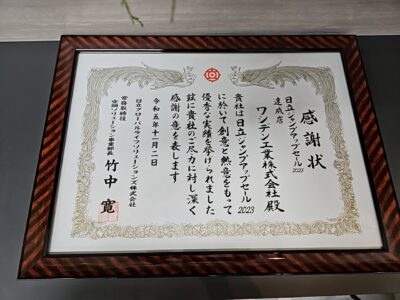 感謝状
日立ジャンプアップセール2023
達成店
ワンテン工業株式会社 殿
貴社は日立ジャンプアップセール2023
に於いて創意と熱意をもって
優秀な実績を挙げられました
玆に貴社のご尽力に対し深く
感謝の意を表します
令和五年十一月二日
日立グローバルライフソリューションズ株式会社
常務取締役
空調ソリューション事業部長
竹中 寛